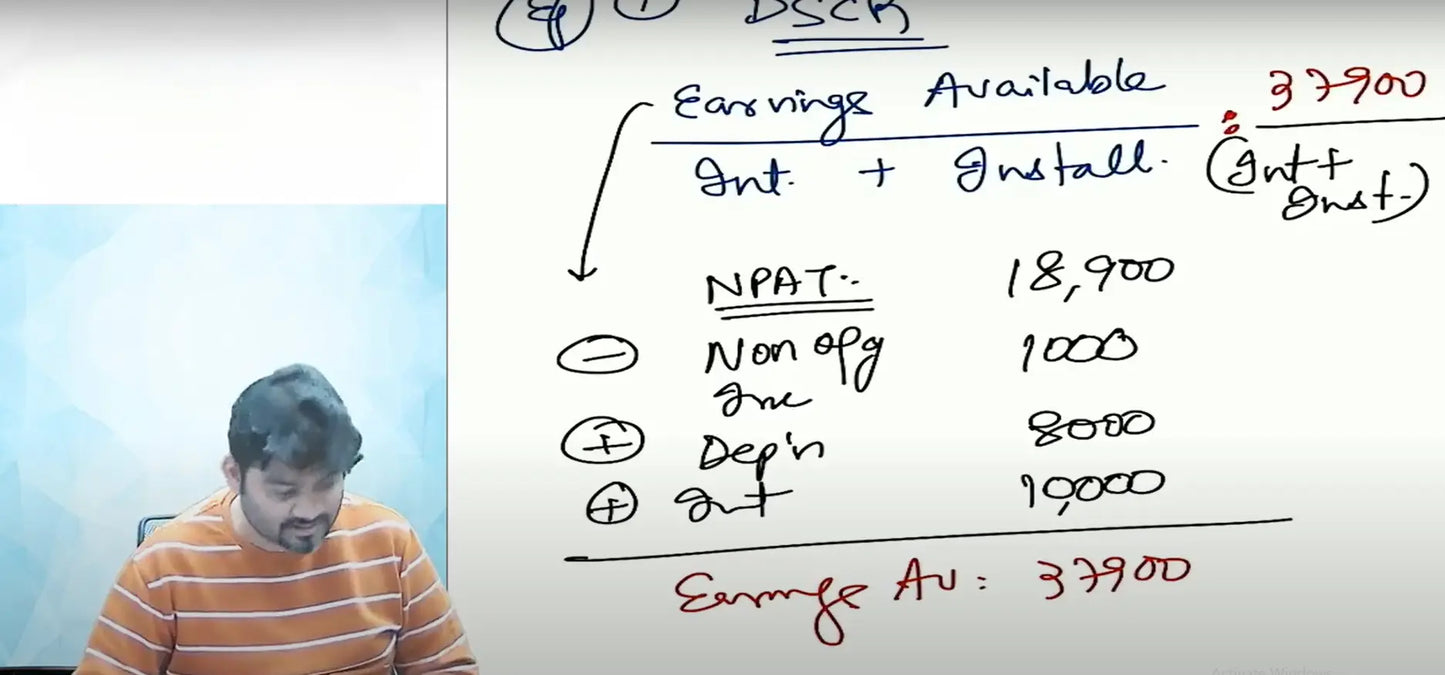 Eg 1 DSCR
Earnings Available : 37900
Int. + Install. (Int + Inst.)
NPAT:- 18,900
- Non opg Inc 1000
+ Dep'n 8000
+ Int 10,000
Earnings Av : 37900
Activate Windows